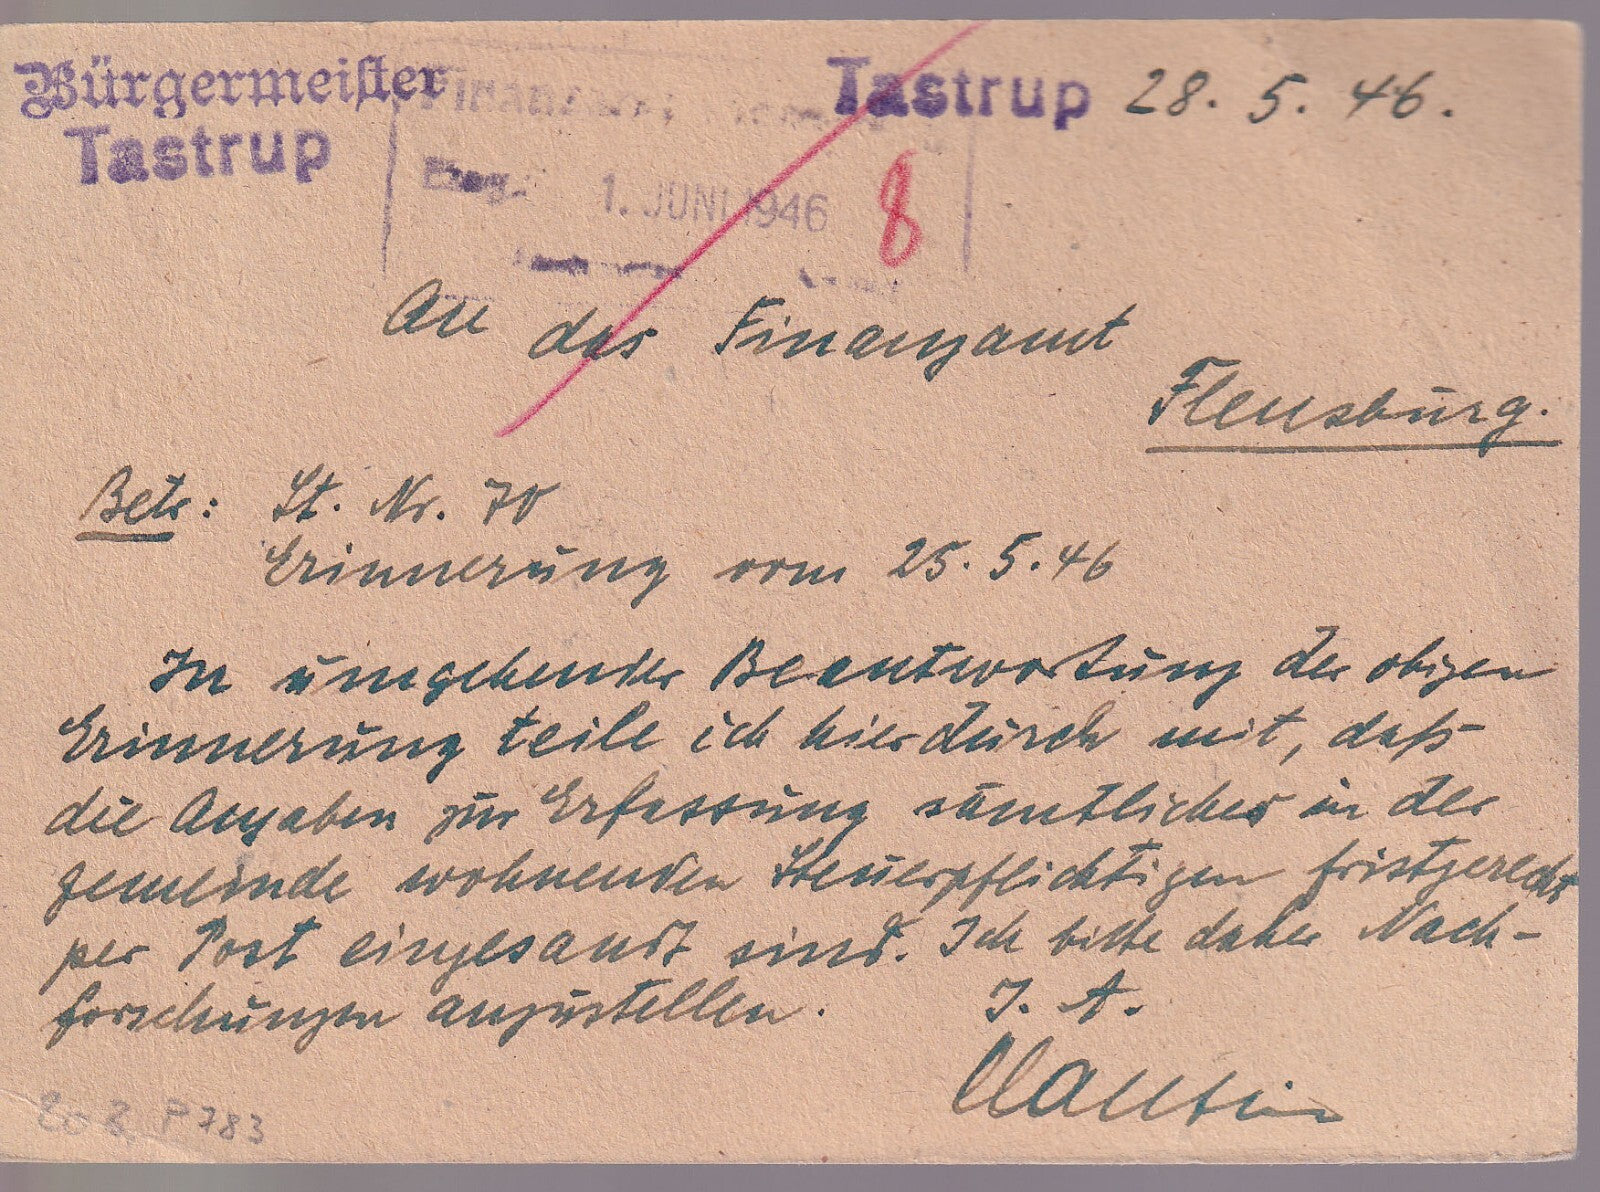 Bürgermeister
Tastrup
Tastrup 28. 5. 46.
Finanzamt
Eing.
1. JUNI 1946
8
An das Finanzamt
Flensburg.
Betr: St. Nr. 70
Erinnerung vom 25.5.46
In umgehender Beantwortung der obigen
Erinnerung teile ich hierdurch mit, daß
die Angaben zur Erfassung sämtlicher in der
Gemeinde wohnenden Steuerpflichtigen fristgerecht
per Post eingesandt sind. Ich bitte daher Nach-
forschungen anzustellen.
I. A.
P 783